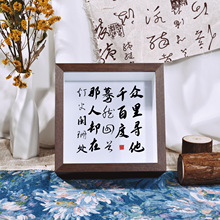 众里寻他
千百度
蓦然回首
那人却在
灯火阑珊处